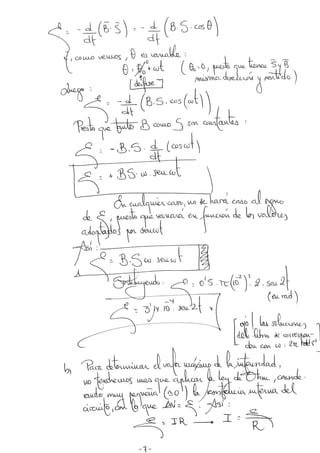 ℰ = - d/dt (B⃗ · S⃗) = - d/dt (B · S · cos θ)
Y, como vemos, θ es variable :
θ = θ₀ + ωt ( θ₀ = 0, puesto que tienen S⃗ y B⃗
[desfase] misma dirección y sentido )
Luego :
ℰ = - d/dt (B · S · cos (ωt))
Puesto que tanto B como S son constantes :
ℰ = - B · S · d/dt (cos ωt)
ℰ = + B S · ω · sen ωt
En cualquier caso, no se hará caso al signo
de ℰ, puesto que variará en función de los valores
adoptados por sen ωt
Así :
ℰ = B · S ω sen ωt
Sustituyendo : ℰ = 0'5 · π (10⁻²)² · 2 · sen 2t
(en rad)
ℰ = 3'14 10⁻⁴ · sen 2t v
[ojo! las soluciones
del libro se correspon-
den con ω = 2π rad s⁻¹
b) Para determinar el valor máximo de la intensidad,
no tendremos más que aplicar la ley de Ohm, conside-
rando muy pequeña (≃0) la resistencia interna del
circuito, con lo que ΔV = ℰ. Así :
ℰ = I R → I = ℰ/R
-7-